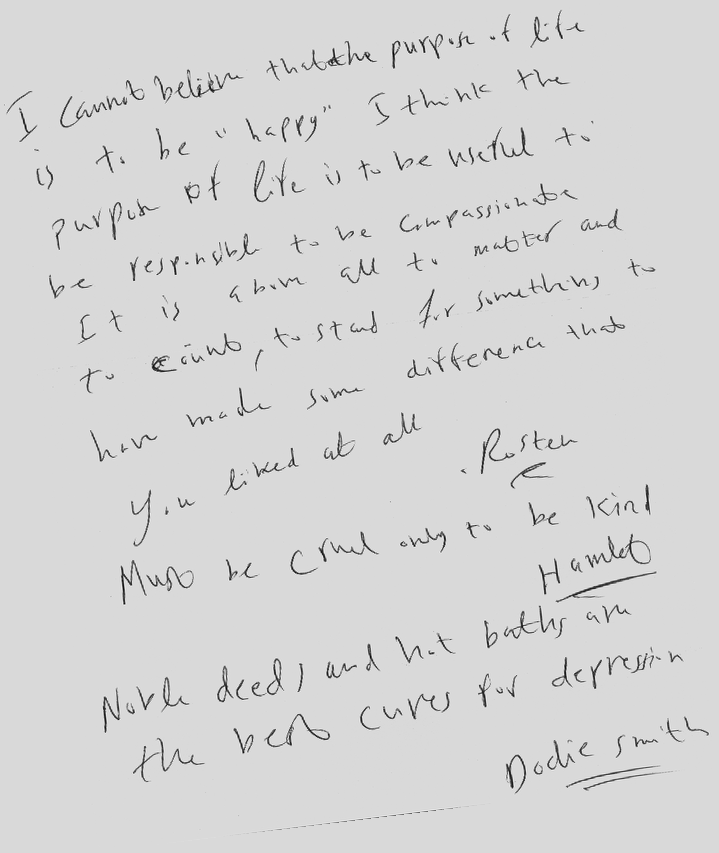 I cannot believe that the purpose of life
is to be "happy" I think the
purpose of life is to be useful to
be responsible to be compassionate
It is above all to matter and
to count, to stand for something to
have made some difference that
you lived at all
. Rosten
Must be cruel only to be kind
Hamlet
Noble deeds and hot baths are
the best cures for depression
Dodie smith